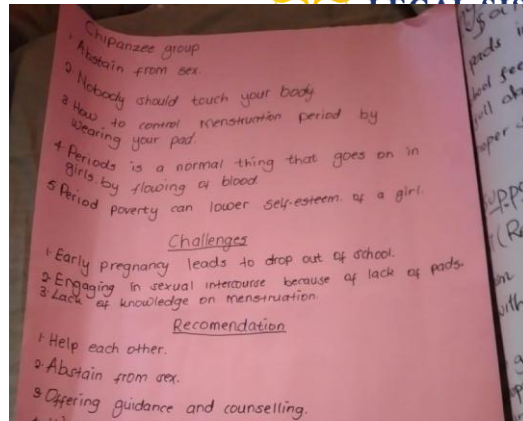 Chipanzee group
1. Abstain from sex.
2. Nobody should touch your body
3. How to control menstruation period by
wearing your pad.
4. Periods is a normal thing that goes on in
girls by flowing of blood
5. Period poverty can lower self-esteem of a girl.
Challenges
1. Early pregnancy leads to drop out of school.
2. Engaging in sexual intercourse because of lack of pads.
3. Lack of knowledge on menstruation.
Recomendation
1. Help each other.
2. Abstain from sex.
3. Offering guidance and counselling.